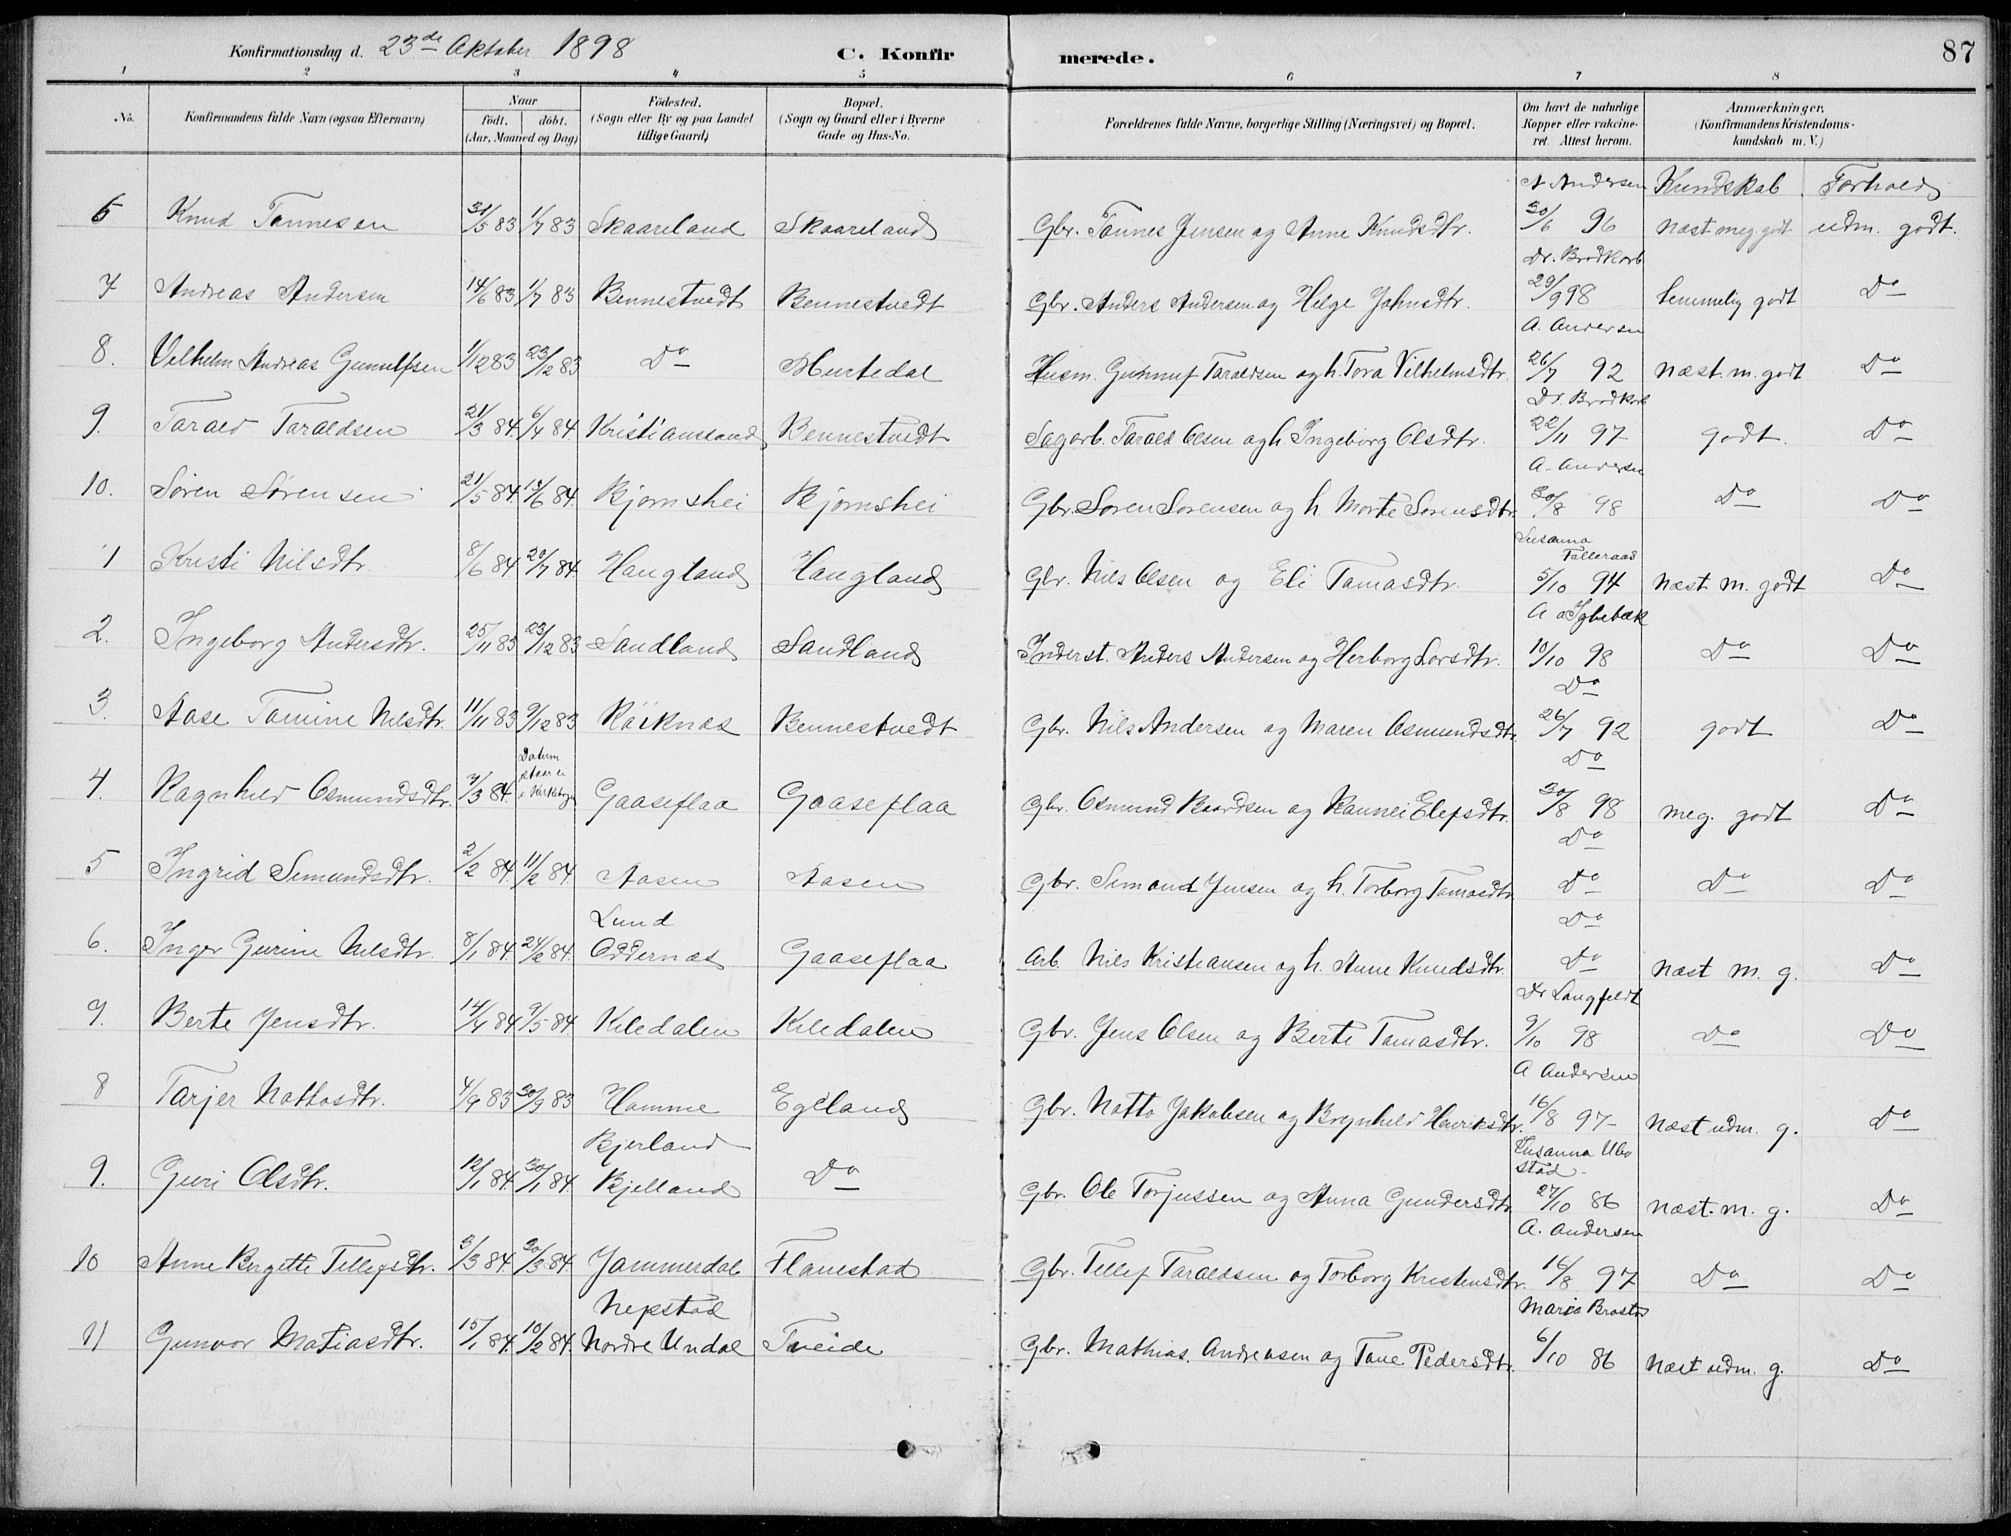 Konfirmationsdag d. 23de Oktober 1898 C. Konfir merede. 87
1 2 3 4 5 6 7 8
No. Konfirmandens fulde Navn (ogsaa Efternavn) Naar födt. döbt. (Aar, Maaned og Dag) Födested. (Sogn eller By og paa Landet tillige Gaard) Bopæl. (Sogn og Gaard eller i Byerne Gade og Hus-No. Forældrenes fulde Navne, borgerlige Stilling (Næringsvei) og Bopæl. Om havt de naturlige Kopper eller vakcineret. Attest herom. Anmærkninger. (Konfirmandens Kristendomskundskab m. V.)
A Andersen Kundskab Forhold
6 Knud Tønnesen 31/5 83 1/7 83 Skaareland Skaareland Gbr. Tønnes Jensen og Anne Knudsdtr. 30/6 96 næst meg. godt udm. godt.
Dr. Brodkorb
7 Andreas Andersen 14/6 83 1/7 83 Bennestvedt Bennestvedt Gbr. Anders Andersen og Helge Johnsdtr. 29/9 98 temmelig godt Do
A. Andersen
8. Vilhelm Andreas Gunnufsen 1/12 83 23/12 83 Do Murtedal Husm. Gunnuf Taraldsen og h. Tora Vilhelmsdtr. 26/7 92 næst. m. godt Do
Dr. Brodkorb
9. Tarald Taraldsen 21/3 84. 6/4 84. Kristianssand Bennestvedt Sagarb. Tarald Olsen og h. Ingeborg Olsdtr. 22/11 97 godt. Do
A. Andersen
10. Søren Sørensen 21/5 84. /6 84. Bjørnshei Bjørnshei Gbr. Søren Sørensen og h. Morte Sørensdtr. 30/8 98 Do Do
Susanna Falleraas
1 Kristi Nilsdtr. 8/6 84 20/7 84. Haugland Haugland Gbr. Nils Olsen og Eli Tomasdtr. 5/10 94 næst m. godt Do
A
2. Ingeborg Andersdtr. 25/11 83 23/12 83 Sandland Sandland Inderst. Anders Andersen og Herborg Larsdtr. 10/10 98 Do Do
Do
3. Aase Tomine Nilsdtr. 11/11 83 9/12 83 Røiknæs Bennestvedt Gbr. Nils Andersen og Maren Osmundsdtr. 26/7 92 godt Do
Datum staar ei i Kirkebogen Do
4. Ragnhild Osmundsdtr. 7/3 84. Gaaseflaa Gaaseflaa Gbr. Osmund Baardsen og Rannei Elefsdtr. 30/8 98 meg. godt Do
Do
5 Ingrid Simundsdtr. 2/2 84. 11/2 84. Aasen Aasen Gbr. Simond Jensen og h. Torborg Tomasdtr. Do Do Do
Lund Do
6. Inger Gurine Nilsdtr. 8/1 84. 24/2 84. Oddernæs Gaaseflaa Arb. Nils Kristiansen og h. Anne Knudsdtr. Do næst m. g. Do
Dr Langfeldt
7. Berte Jensdtr. 14/4 84 9/5 84 Kiledalen Kiledalen Gbr. Jens Olsen og Berte Tomasdtr. 9/10 98 Do Do
A Andersen
8 Tarjer Nottosdtr. 4/9 83 30/9 83 Homme Egeland Gbr. Notto Jakobsen og Brynhild Henriksdtr. 16/8 97 næst udm. g. Do
Bjerland Susanna Ubostad
9. Guri Olsdtr. 12/1 84. 30/1 84. Bjelland Do Gbr. Ole Torjussen og Anna Gundersdtr. 27/10 86 næst. m. g. Do
A. Andersen
10 Anne Bergitte Tellefsdtr. 3/3 84. 30/3 84. Jammerdal Flanestad Gbr. Tellef Taraldsen og Torborg Kristensdtr. 16/8 97 Do Do
Nepstad Maria
11 Gunvor Matiasdtr. 15/1 84. 10/2 84. Nordre Undal Tveide Gbr. Mathias. Andreasen og Tone Pedersdtr. 6/10 86 næst udm. g. Do